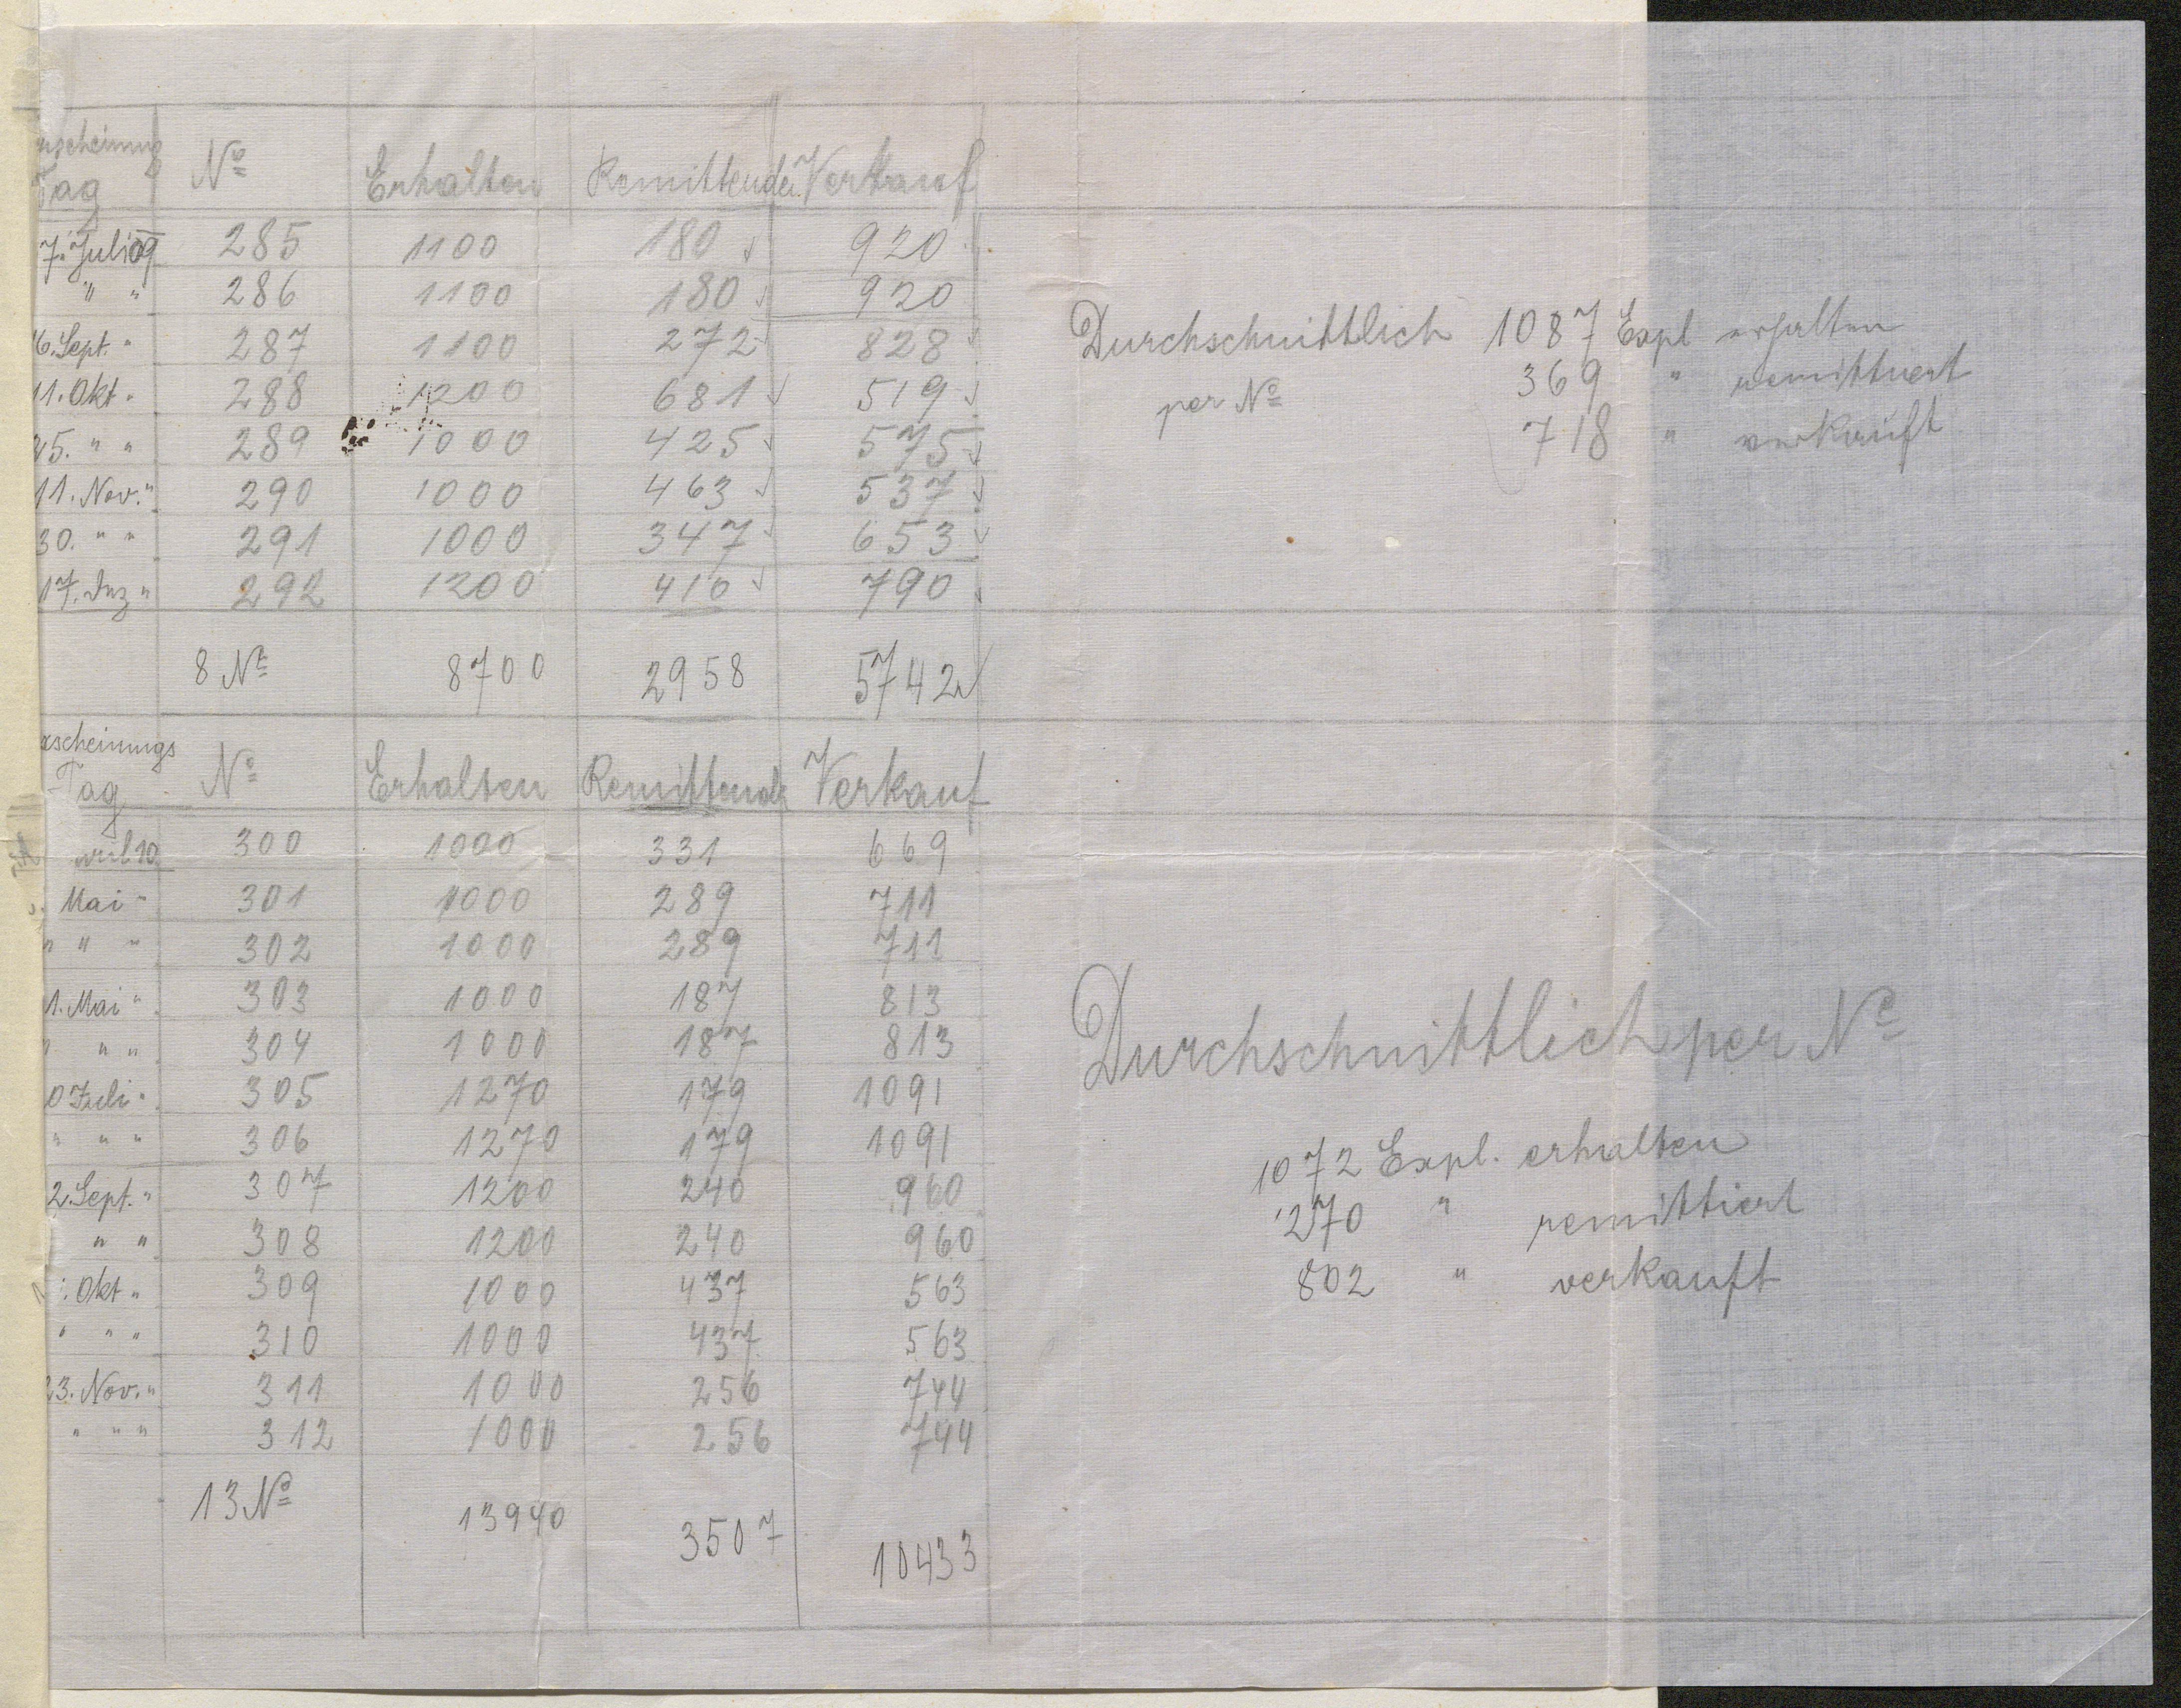 rscheinung Tag Nº Erhalten Remittenden Verkauf
7. Juli 09 285 1100 180 920
" " 286 1100 180 920
6. Sept. " 287 1100 272 828
11. Okt. " 288 1200 681 519
25. " " 289 1000 425 575
11. Nov. " 290 1000 463 537
30. " " 291 1000 347 653
17. Dez " 292 1200 410 790
8 Nº 8700 2958 5742
Durchschnittlich 1087 Expl erhalten
per Nº 369 " remittiert
718 " verkauft
rscheinungs Tag Nº Erhalten Remittende Verkauf
ril 10 300 1000 331 669
Mai " 301 1000 289 711
" " " 302 1000 289 711
1. Mai " 303 1000 187 813
" " 304 1000 187 813
0 Juli " 305 1270 179 1091
" " " 306 1270 179 1091
2. Sept. " 307 1200 240 960
" " 308 1200 240 960
. Okt " 309 1000 437 563
" " " 310 1000 437 563
23. Nov. " 311 1000 256 744
" " " 312 1000 256 744
13 Nº 13940 3507 10433
Durchschnittlich per Nº
1072 Expl. erhalten
270 " remittiert
802 " verkauft